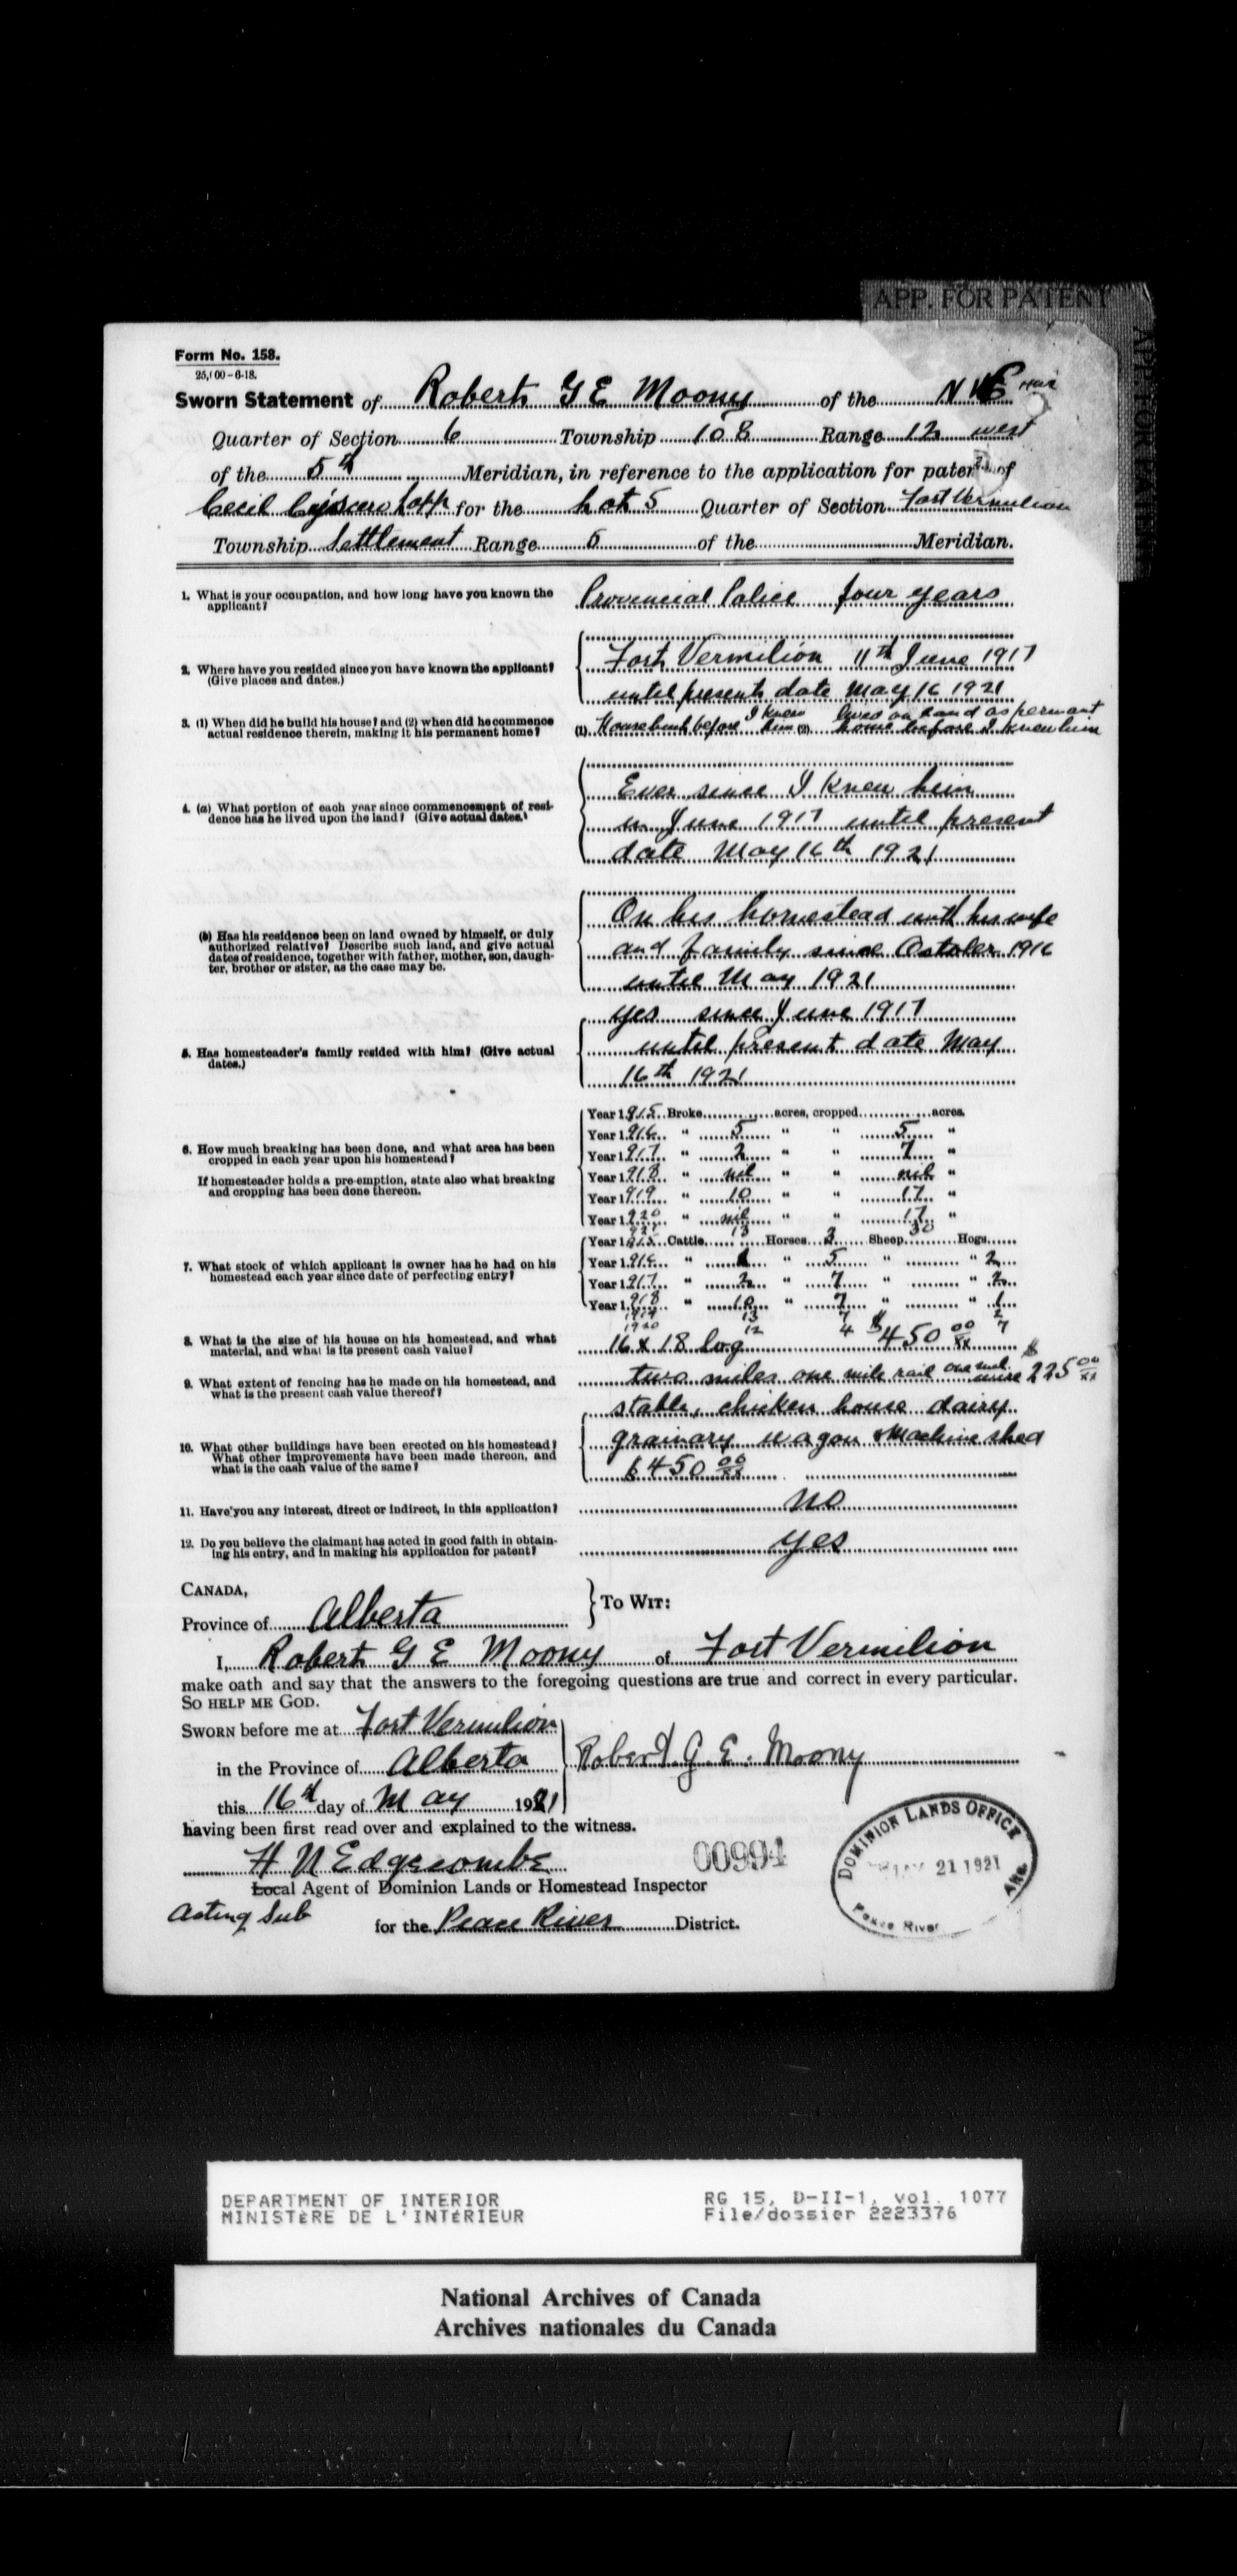 APP. FOR PATENT
APP. FOR PATENT
Form No. 158.
25,000-6-18.
Sworn Statement of Robert G E Moony of the N W
Quarter of Section 6 Township 108 Range 12 west
of the 5th Meridian, in reference to the application for patent of
Cecil for the Lot 5 Quarter of Section Fort Vermilion
Township Settlement Range 5 of the Meridian.
1. What is your occupation, and how long have you known the applicant? Provincial Police four years
2. Where have you resided since you have known the applicant? (Give places and dates.) Fort Vermilion 11th June 1917
until present date May 16 1921
3. (1) When did he build his house? and (2) when did he commence actual residence therein, making it his permanent home? (1) House built before I knew him (2) lived on land as permant home before I knew him
4. (a) What portion of each year since commencement of residence has he lived upon the land? (Give actual dates.) Ever since I knew him
in June 1917 until present
date May 16th 1921
(b) Has his residence been on land owned by himself, or duly authorized relative? Describe such land, and give actual dates of residence, together with father, mother, son, daughter, brother or sister, as the case may be. On his homestead with his wife
and family since October 1916
until May 1921
5. Has homesteader's family resided with him? (Give actual dates.) yes since June 1917
until present date May
16th 1921
6. How much breaking has been done, and what area has been cropped in each year upon his homestead?
If homesteader holds a pre-emption, state also what breaking and cropping has been done thereon.
Year 1915 Broke acres, cropped acres.
Year 1916 " 5 " " 5 "
Year 1917 " 2 " " 7 "
Year 1918 " nil " " nil "
Year 1919 " 10 " " 17 "
Year 1920 " nil " " 17 "
1921 13 30
7. What stock of which applicant is owner has he had on his homestead each year since date of perfecting entry?
Year 1915 Cattle Horses 3 Sheep Hogs
Year 1916 " 1 " 5 " " 2
Year 1917 " 2 " 7 " " 2
Year 1918 " 10 " 7 " " 1
1919 13 7 2
1920 12 4 7
8. What is the size of his house on his homestead, and what material, and what is its present cash value? 16 x 18 log $450 00/xx
9. What extent of fencing has he made on his homestead, and what is the present cash value thereof? two miles one mile rail one mile wire $225 00/xx
10. What other buildings have been erected on his homestead? What other improvements have been made thereon, and what is the cash value of the same? stable, chicken house dairy
grainary wagon & Machine shed
$450 00/xx
11. Have you any interest, direct or indirect, in this application? no
12. Do you believe the claimant has acted in good faith in obtaining his entry, and in making his application for patent? yes
CANADA,
Province of Alberta } TO WIT:
I, Robert G E Moony of Fort Vermilion
make oath and say that the answers to the foregoing questions are true and correct in every particular.
SO HELP ME GOD.
SWORN before me at Fort Vermilion
in the Province of Alberta Robert G. E. Moony
this 16th day of May 1921
having been first read over and explained to the witness.
H N Edgecombe
Local Agent of Dominion Lands or Homestead Inspector
Acting Sub for the Peace River District.
00994
DOMINION LANDS OFFICE
MAY 21 1921
Peace River Alta.
DEPARTMENT OF INTERIOR
MINISTÈRE DE L'INTÉRIEUR
RG 15, D-II-1, vol. 1077
File/dossier 2223376
National Archives of Canada
Archives nationales du Canada